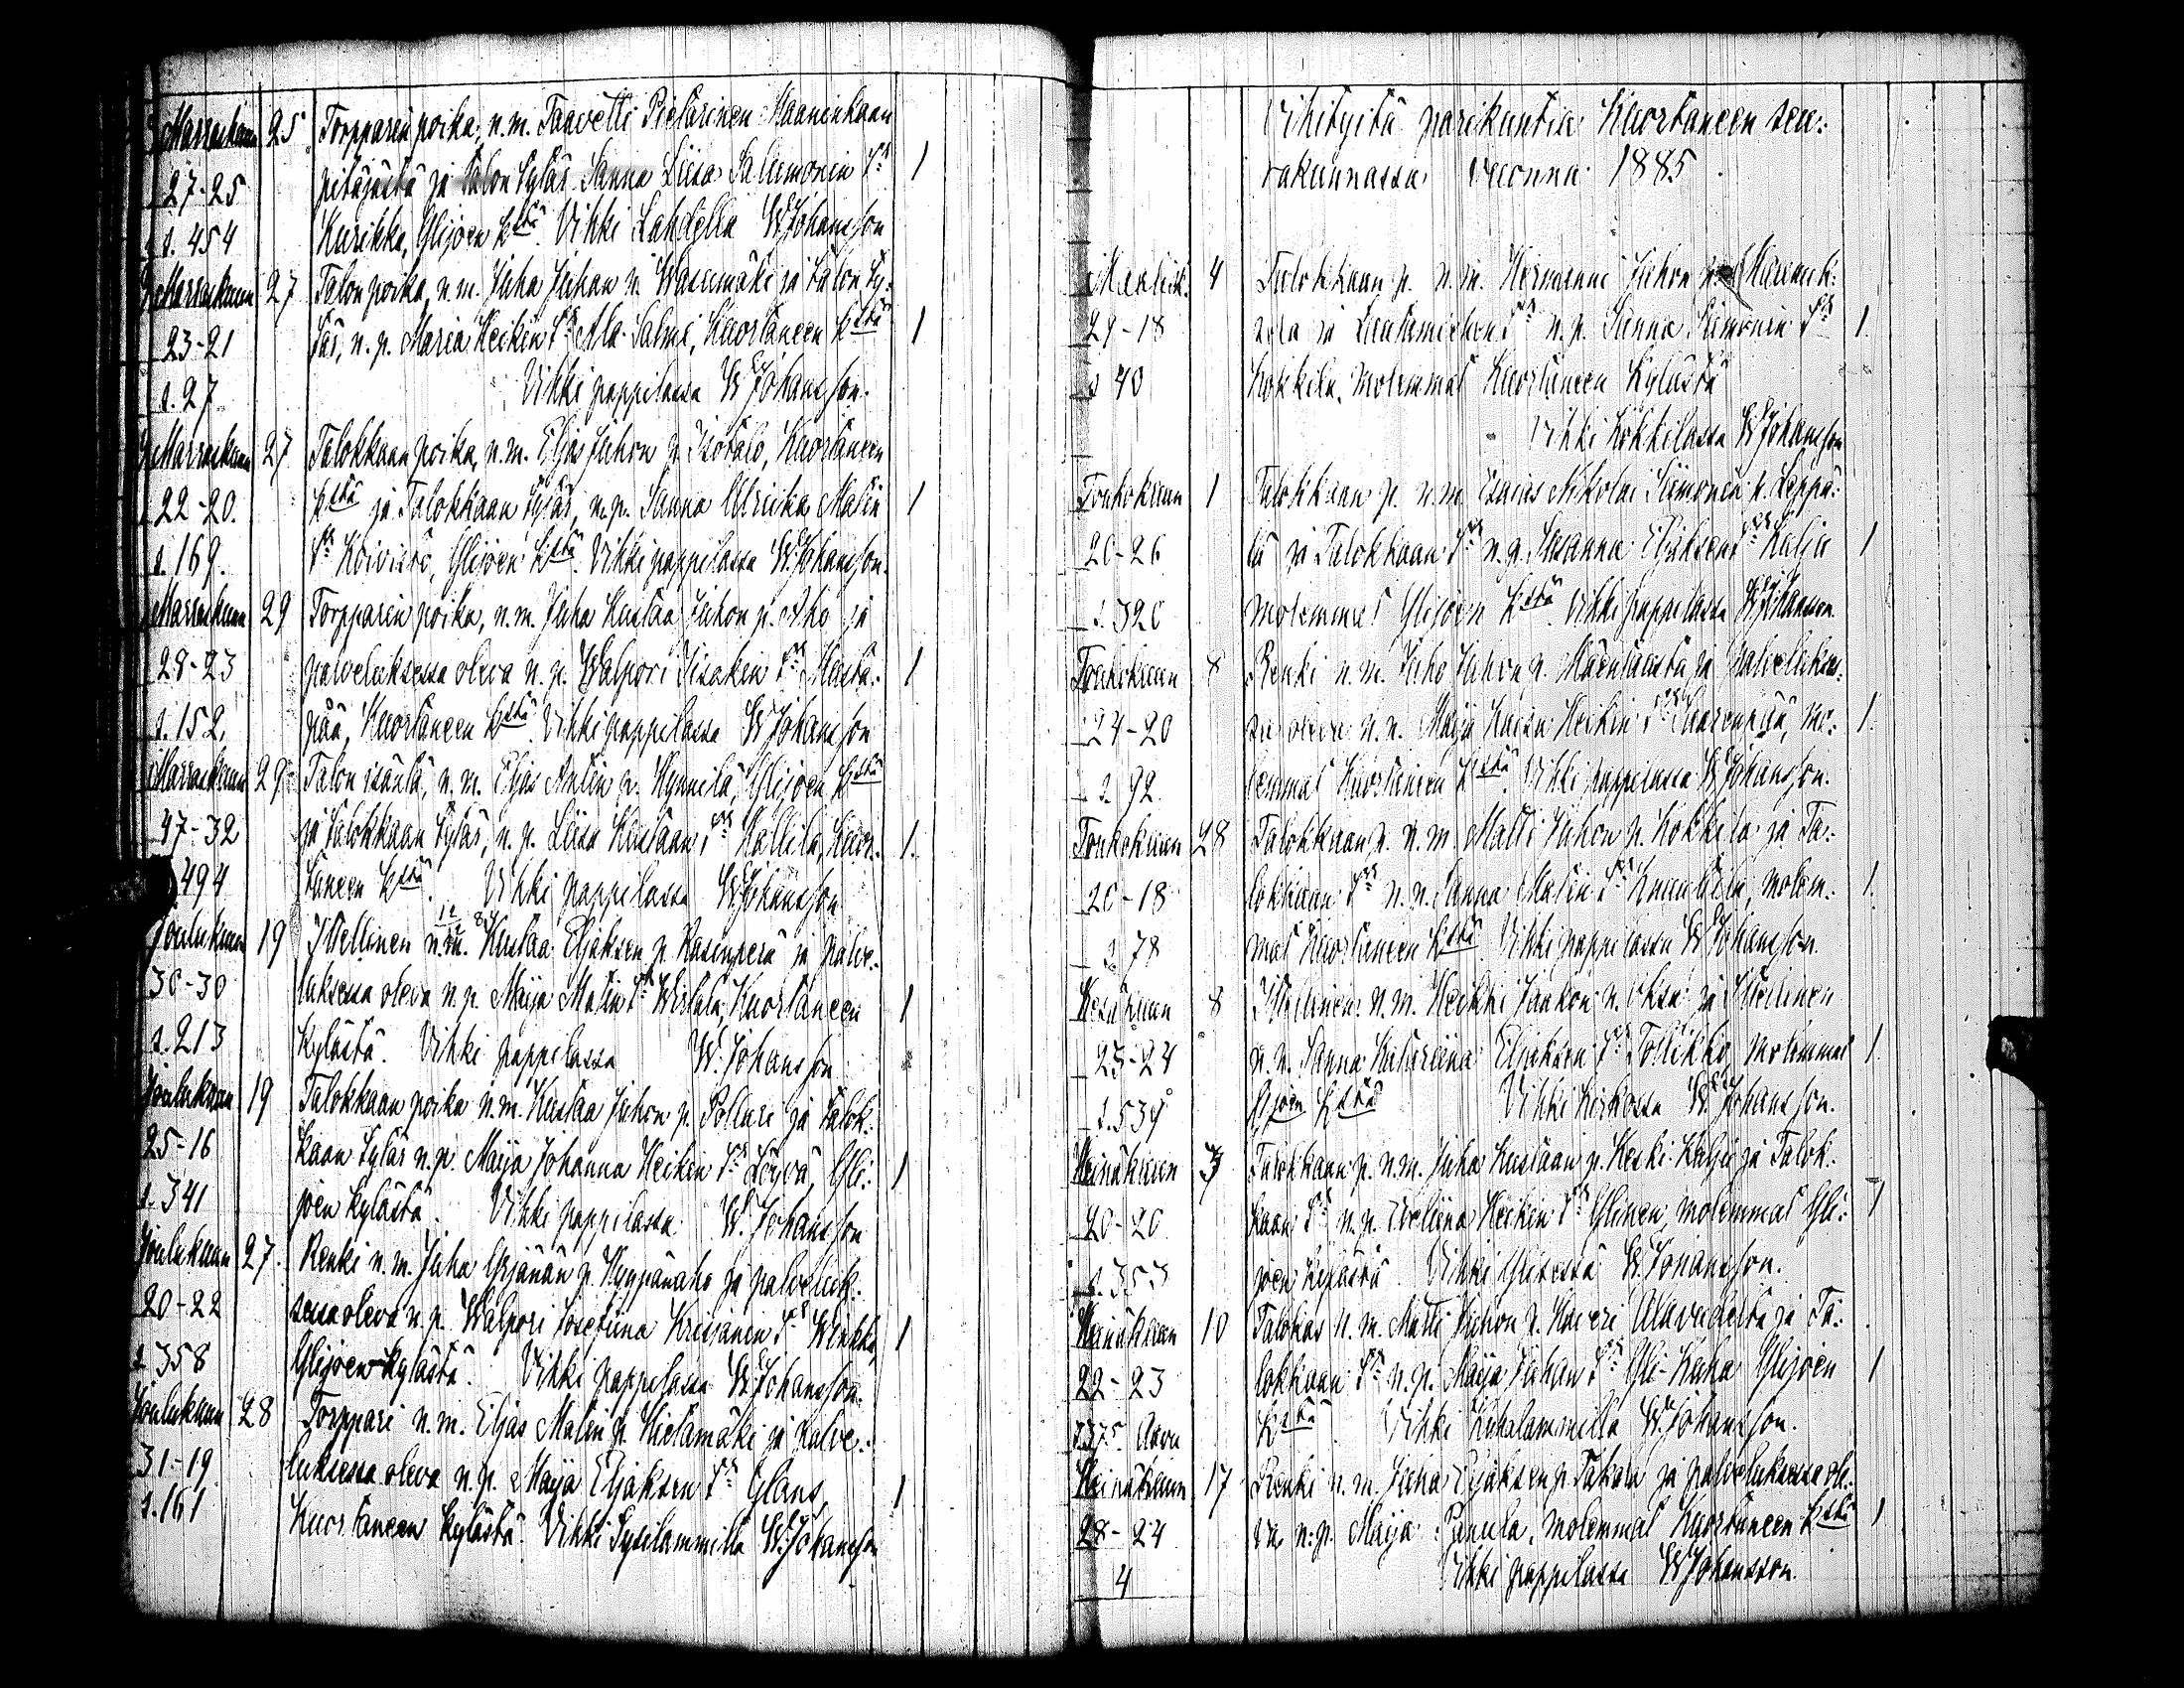 Marraskuun 25 Torpparin poika, n.m. Taavetti Pietarinen Maaninkaan
27-25 pitäjästä ja talon tytär Sanna Liisa Salumonin tr 1
s. 454 Kurikka, Ylijoen kstä. Vihki Lahdella W. Johansson
Marraskuun 27 Talon poika, n.m. Juha Juhan p. Wasumäki ja talon ty-
23-21 tär, n.p. Maria Heikin tr Ala-Salmi, Kuortaneen kstä 1
s. 27 Vihki pappilassa W. Johansson.
Marraskuun 27 Talokkaan poika, n.m. Eljas Juhon p. Isotalo, Kuortaneen
22-20. kstä ja Talokkaan tytär, n.p. Sanna Ulriika Matin 1
s. 169. tr Koivisto, Ylijoen kstä. Vihki pappilassa W. Johansson.
Marraskuun 29 Torpparin poika, n.m. Juha Kustaa Juhon p. Aho ja
28-23 palveluksessa oleva n.p. Walpori Iisakin tr Musta- 1
s. 152. pää, Kuortaneen kstä. Vihki pappilassa W. Johansson
Marraskuun 29 Talon isäntä, n.m. Eljas Antin p. Hynnilä, Ylijoen kstä
47-32 ja Talokkaan tytär, n.p. Liisa Kustaan tr Mallila, Kuor- 1.
494 taneen kstä. Vihki pappilassa W. Johansson
Joulukuun 19 Itsellinen n.m. Kustaa Eljaksen p. Kasinperä ja palve-
30-30 luksessa oleva n.p. Maija Matin tr Wirtala, Kuortaneen 1
s. 213 kylästä. Vihki pappilassa W. Johansson
Joulukuun 19 Talokkaan poika n.m. Kustaa Juhon p. Pollari ja Talok-
25-16 kaan tytär n.p. Maija Johanna Heikin tr Löyvä, Yli- 1
s. 341 joen kylästä. Vihki pappilassa W. Johansson
Joulukuun 27. Renki n.m. Juha Yrjänän p. Hyypänaho ja palveluk-
20-22 sessa oleva n.p. Walpori Josefiina Krissanen tr Winkki, 1
s. 358 Ylijoen kylästä. Vihki pappilassa W. Johansson.
Joulukuun 28 Torppari n.m. Eljas Matin p. Hietamäki ja palve-
31-19 luksessa oleva n.p. Maija Eljaksen tr Glans, 1
s. 161 Kuortaneen kylästä. Vihki Sysilammilla W. Johansson
Vihityitä parikuntia Kuortaneen seu-
rakunnassa vuonna 1885.
Maalisk. 4 Talokkaan p. n.m. Hermanni Juhon p.
29-18 ja Lautamiehen tr n.p. Sanna Simonin tr 1.
s 40 Kokkila, molemmat Kuortaneen kylästä
Vihki Kokkilassa W. Johansson
Toukokuun 1 Talokkaan p. n.m. Esaias Nikolai Siimonin p. Leppä-
20-26 lä ja Talokkaan tr n.p. Susanna Eljaksen tr Kalju 1
s. 320 molemmat Ylijoen kstä. Vihki pappilassa W. Johansson.
Toukokuun 8 Renki n.m. Juho Juhon p. Mäentausta ja palveluksessa
24-20 oleva n.p. Maija Kaisa Heikin tr Saarenpää, mo- 1.
s. 92 lemmat Kuortaneen kstä. Vihki pappilassa W. Johansson.
Toukokuun 28 Talokkaan p. n.m. Matti Juhon p. Kokkila ja Ta-
20-18 lokkaan tr n.p. Sanna Matin tr Knuuttila, molem- 1.
s 78 mat Kuortaneen kstä. Vihki pappilassa W. Johansson.
Kesäkuun 8 Itsellinen n.m. Heikki Jaakon p. Oksa ja Itsellinen
23-24 n.p. Sanna Katariina Eljaksen tr Töllikkö, molemmat 1.
s. 539 Ylijoen kstä Vihki Kirkossa W. Johansson.
Heinäkuun 3 Talokkaan p. n.m. Juha Kustaan p. Keski-Kalju ja Talok-
20-20 kaan tr n.p. Eveliina Heikin tr Ylinen, molemmat Yli- 1
s. 353 joen kylästä. Vihki Ylisessä W. Johansson.
Heinäkuun 10 Talokas n.m. Matti Juhon p. Kaveri Alavudelta ja Ta-
22-23 lokkaan tr n.p. Maija Juhan tr Yli-Kuha Ylijoen 1
s 375. Alavu kstä Vihki Kuhalammilla W. Johansson.
Heinäkuun 17 Renki n.m. Juha Eljaksen p. Takala ja palveluksessa ole-
28-24 va n.p. Maija Panula, molemmat Kuortaneen kstä 1
4 Vihki pappilassa W. Johansson.